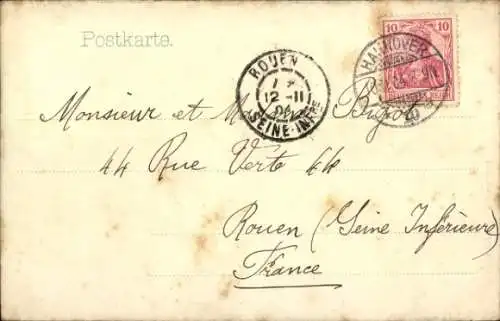 Postkarte.
10 10
HANNOVER
ROUEN
12-11
04
SEINE-INFRE
Monsieur et M Bigot
44 Rue Verte 44
Rouen (Seine Inférieure)
France